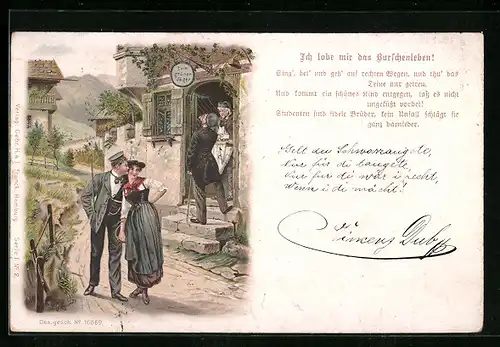 Ich lobe mir das Burschenleben!
Sing', bet' und geh' auf rechten Wegen, und thu' das
Deine nur getreu.
Und kommt ein schönes Kind entgegen, laß es nicht
ungeküßt vorbei!
Studenten sind fidele Brüder, kein Unfall schlägt sie
ganz darnieder.
Gelt du Schwarzaugete,
Für di taugete,
für di wär i recht,
Wenn i di möcht!
Zum
grünen
Jäger
Verlag Gebr. H. & I. Spruck, Hamburg Serie I No 2
Ges. gesch. No 16869.